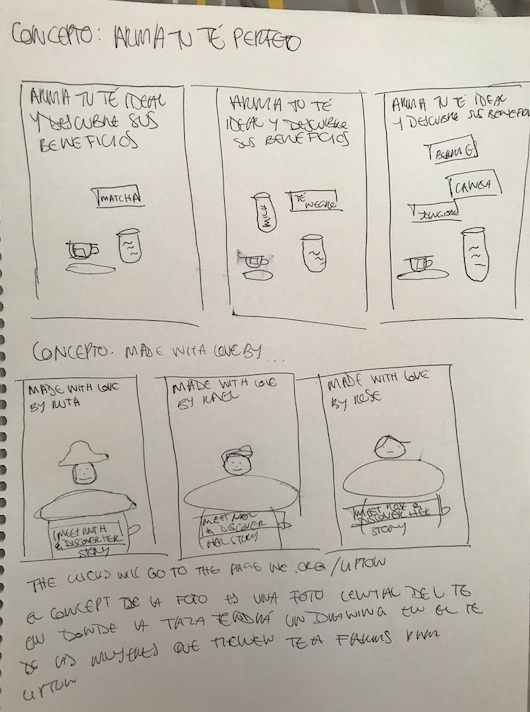 CONCEPTO: ARMA TU TÉ PERFECTO
ARMA TU TÉ IDEAL
Y DESCUBRE SUS
BENEFICIOS
MATCHA
ARMA TU TÉ
IDEAL Y DESCUBRE
SUS BENEFICIOS
MILK
TÉ
NEGRO
ARMA TU TÉ IDEAL
Y DESCUBRE SUS BENEFICIO
CANELA
CONCEPTO: MADE WITH LOVE BY...
MADE WITH LOVE
BY RUTH
MEET RUTH
& DISCOVER HER
STORY
MADE WITH LOVE
BY
MEET
& DISCOVER
HER STORY
MADE WITH LOVE
BY ROSE
MEET ROSE &
DISCOVER HER
STORY
THE CLICKS WILL GO TO THE PAGE WE.ORG/LIPTON
EL CONCEPT DE LA FOTO ES UNA FOTO CENITAL DEL TE
EN DONDE LA TAZA TENDRÁ UN DRAWING EN EL TE
DE LAS MUJERES QUE TIENEN TEA FARMS PARA
LIPTON